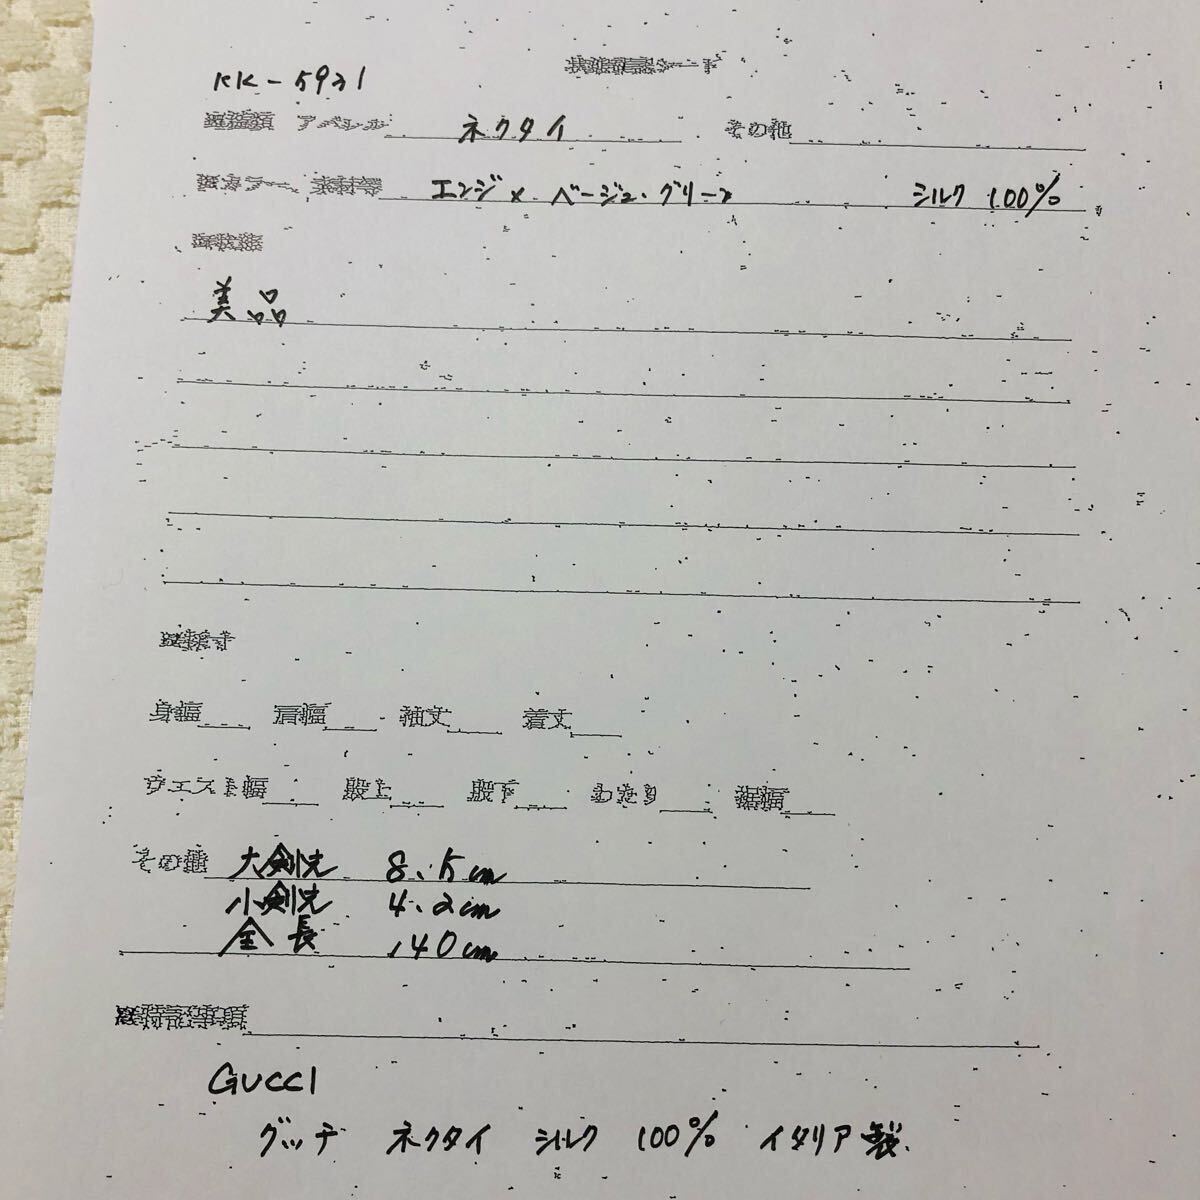 状態確認シート
KK-5921
アパレル ネクタイ その他
カラー、素材等 エンジ × ベージュ・グリーン シルク 100%
状態
美品
採寸
身幅 肩幅 袖丈 着丈
ウエスト幅 股上 股下 わたり 裾幅
その他 大剣先 8.5cm
小剣先 4.2cm
全長 140cm
※特記事項
GUCCI
グッチ ネクタイ シルク 100% イタリア製.